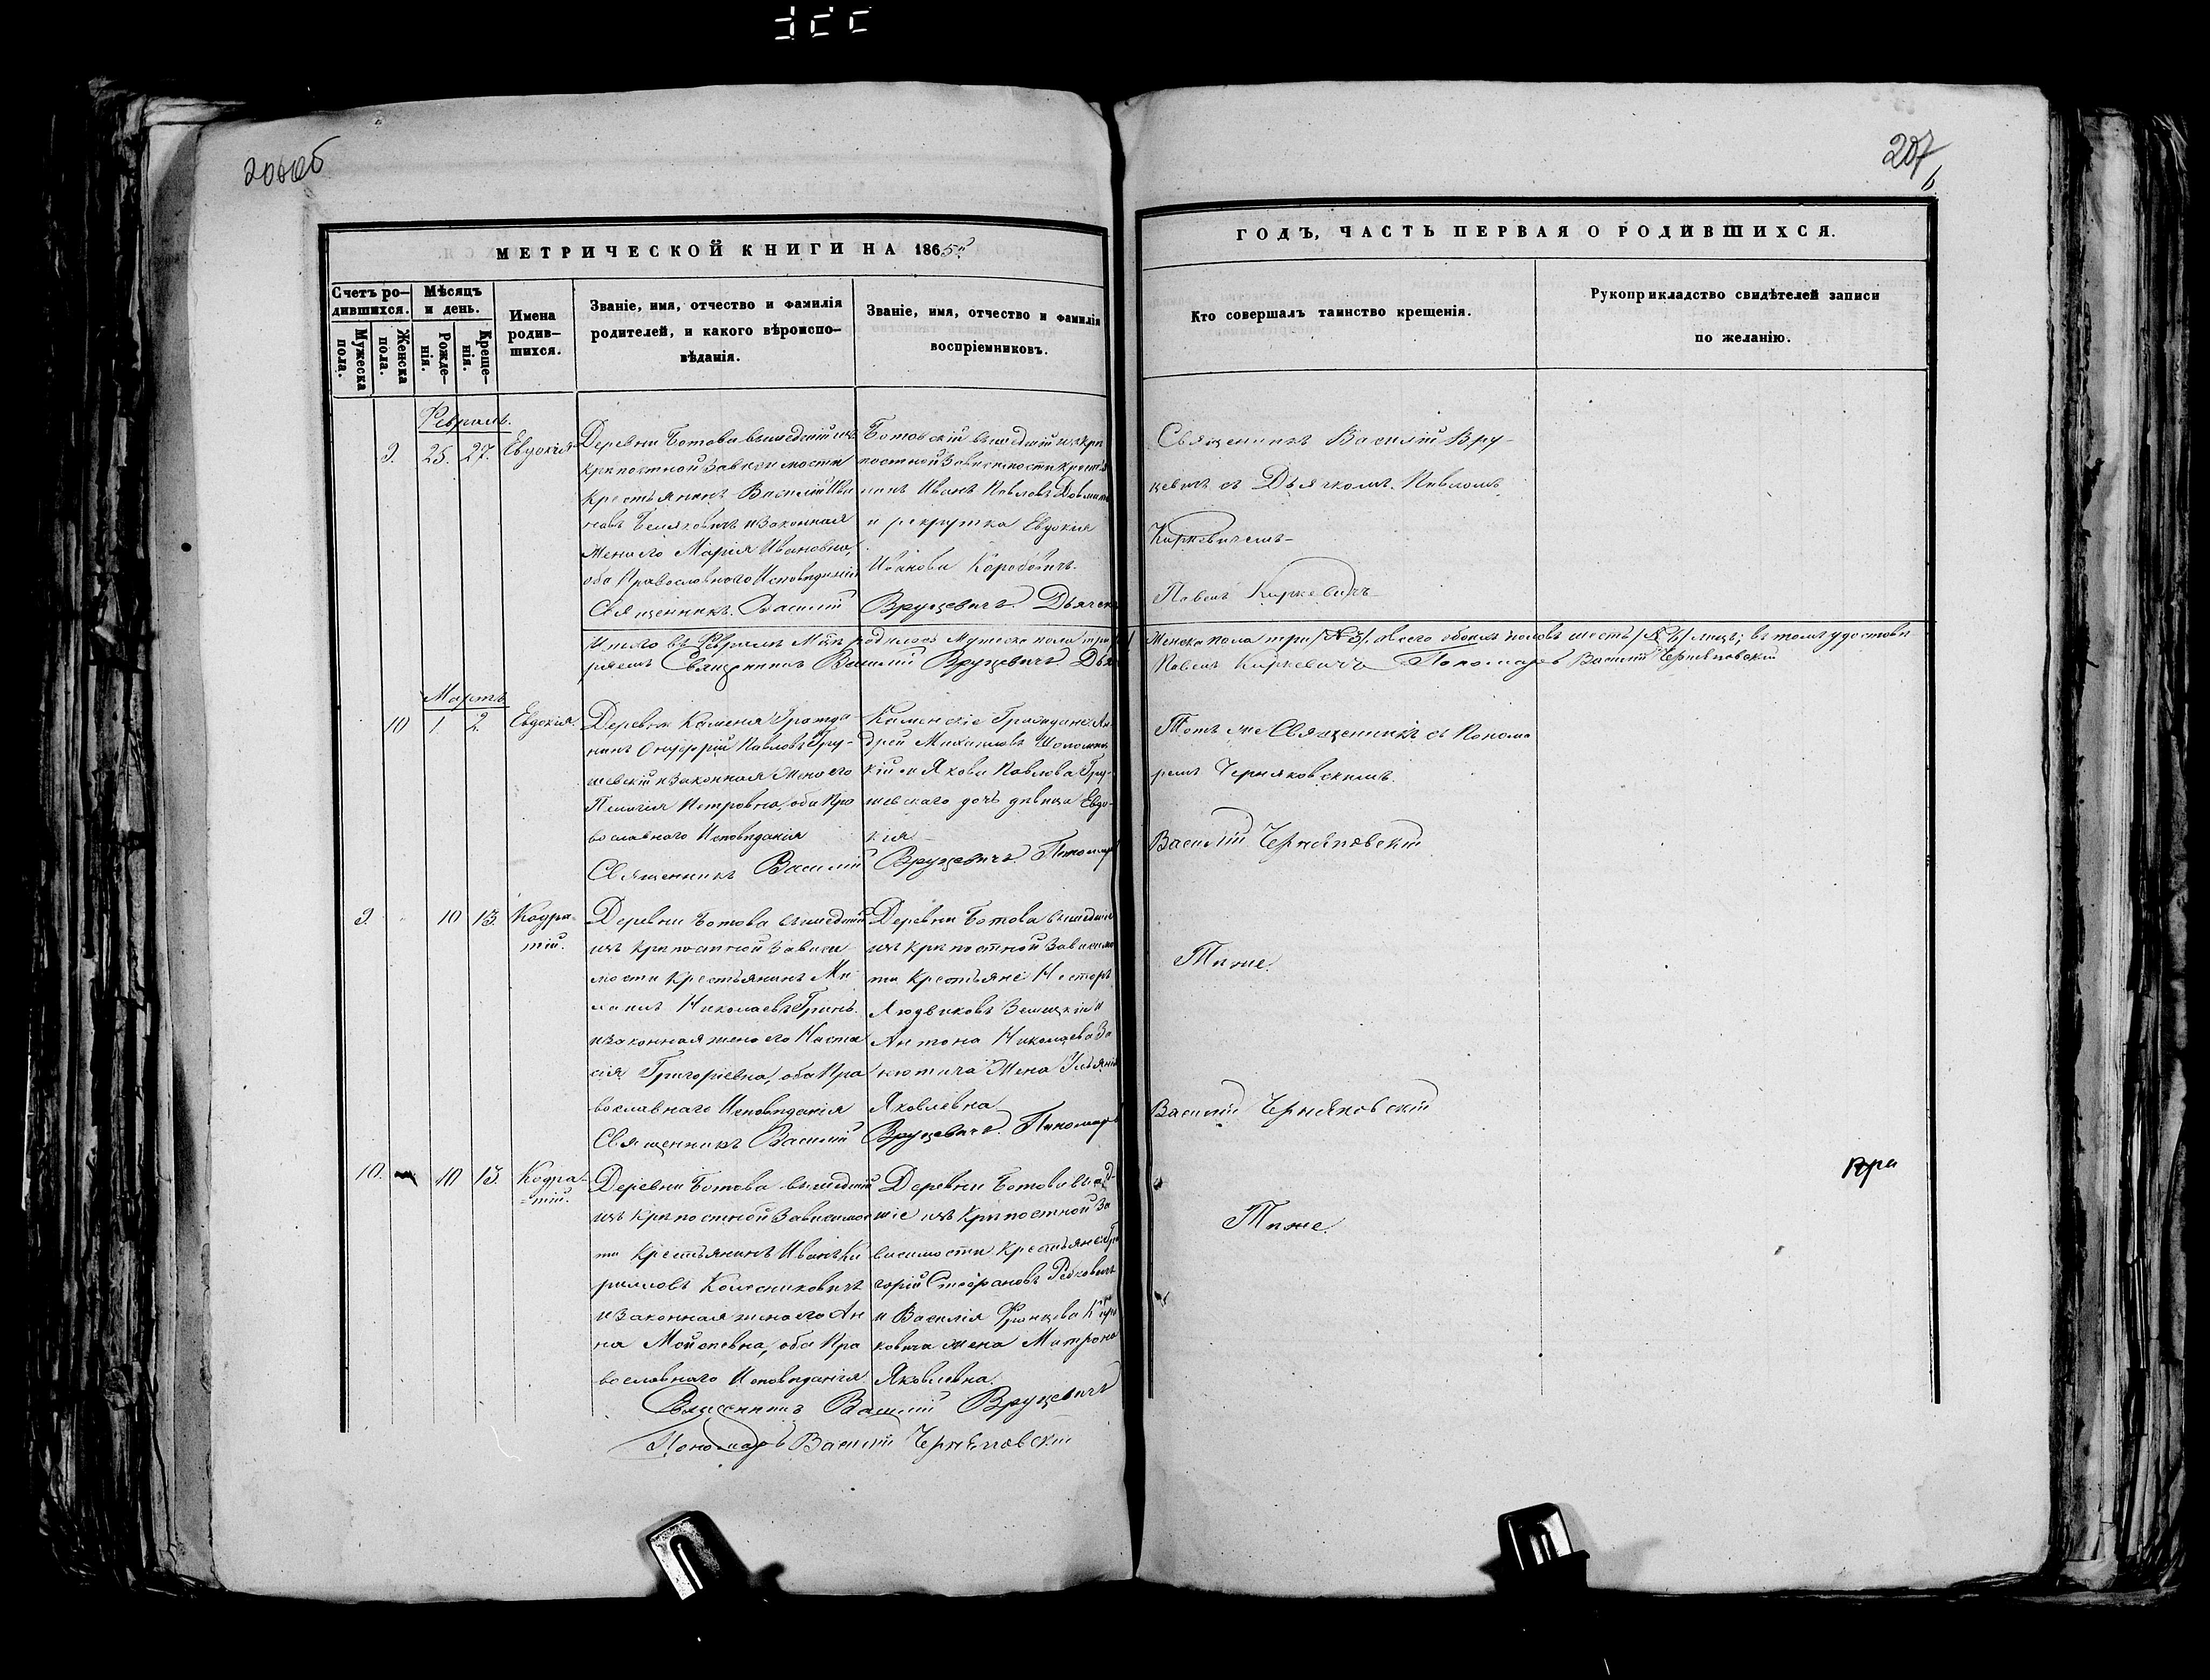 207
6
МЕТРИЧЕСКОЙ КНИГИ НА 1865й
ГОДЪ, ЧАСТЬ ПЕРВАЯ О РОДИВШИХСЯ.
Счетъ ро-
дившихся.
Мужеска
пола.
Женска
пола.
Мѣсяцъ
и день.
Рожде-
нія.
Креще-
нія.
Имена
родив-
шихся.
Званіе, имя, отчество и фамилія
родителей, и какого вѣроиспо-
вѣданія.
Званіе, имя, отчество и фамилія
воспріемниковъ.
Кто совершалъ таинство крещенія.
Рукоприкладство свидѣтелей записи
по желанію.
Февраль.
9. 25. 27. Евдокія
Деревни Ботова вышедшій изъ
крѣпостной Зависимости
Крестьянинъ Василій Ива
новъ Беляковичъ и законная
жена его Марія Ивановна,
оба Православнаго Исповѣданія
Священникъ Василій
Ботовскій вышедшій изъ крѣ
постной Зависимости крестья
нинъ Иванъ Павловъ
и рекрутка Евдокія
Иванова Коробовичъ.
Вруцевичъ. Дьячекъ
Священникъ Василій Вру-
цевичъ съ Дьячкомъ Павломъ
Киркевичемъ
Павелъ Киркевичъ
Итого въ Февралѣ Мцѣ родилось Мужеска пола три
Женска пола три /№3/. Всего обоихъ половъ шесть /№6/ лицъ; въ томъ удостовѣ
ряемъ Священникъ Василій Вруцевичъ Дья
Павелъ Киркевичъ Пономарь Василій Черняковскій
Мартъ
10 1. 2. Евдокія.
Деревни Каменя Гражда
нинъ Онуфрій Павловъ Гру-
шевскій и Законная Жена его
Пелагія Петровна, оба Пра
вославнаго Исповѣданія
Священникъ Василій
Каменскіе Граждане Ан
дрей Михайловъ
кій и Якова Павлова Гру-
шевскаго дочь дѣвица Евдо-
кія
Вруцевичъ. Пономарь
Тотъ же Священникъ съ Понома
ремъ Черняковскимъ.
Василій Черняковскій
9. 10 13. Кодра-
тій.
Деревни Ботова вышедшій
изъ Крѣпостной Зависи
мости Крестьянинъ Ми
хаилъ Николаевъ Гринь
и законная жена его Наста
сія Григоріевна, оба Пра
вославнаго Исповѣданія
Священникъ Василій
Деревни Ботова вышедшіе
изъ Крѣпостной Зависимо
ти Крестьяне Несторъ
Людвиковъ Зелицкій и
Антона Николаева За
жена Ульяна
Яковлевна
Вруцевичъ. Пономарь
Тѣже.
Василій Черняковскій
10. 10 13. Кодра-
=тій.
Деревни Ботова вышедшій
изъ Крѣпостной Зависимос
ти Крестьянинъ Иванъ Ки
рилловъ Колесниковичъ
и Законная жена его Ан
на Мойсеевна, оба Пра
вославнаго Исповѣданія
Деревни Ботова вышед-
шіе изъ Крѣпостной За
висимости Крестьяне Гри
горій Стефановъ Рабковичъ
и Василія Францева
ковича жена Матрона
Яковлевна.
Тѣже.
Священникъ Василій Вруцевичъ
Пономарь Василій Черняковскій